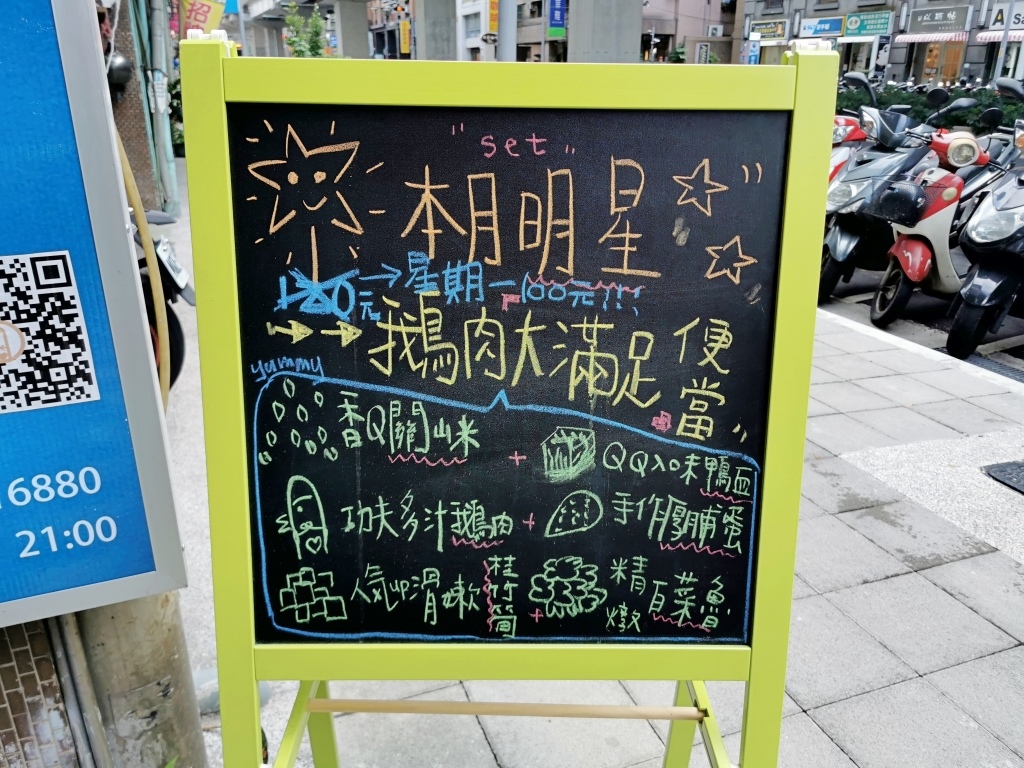 "set"
本月明星
元→星期一100元!!!
鵝肉大滿足便當
yummy
香Q關山米 + QQ入口米鴨血
功夫多汁鵝肉 + 手作胭脯蛋
人氣up滑嫩桂竹筍 + 精燉百菜魯
6880
21:00
招